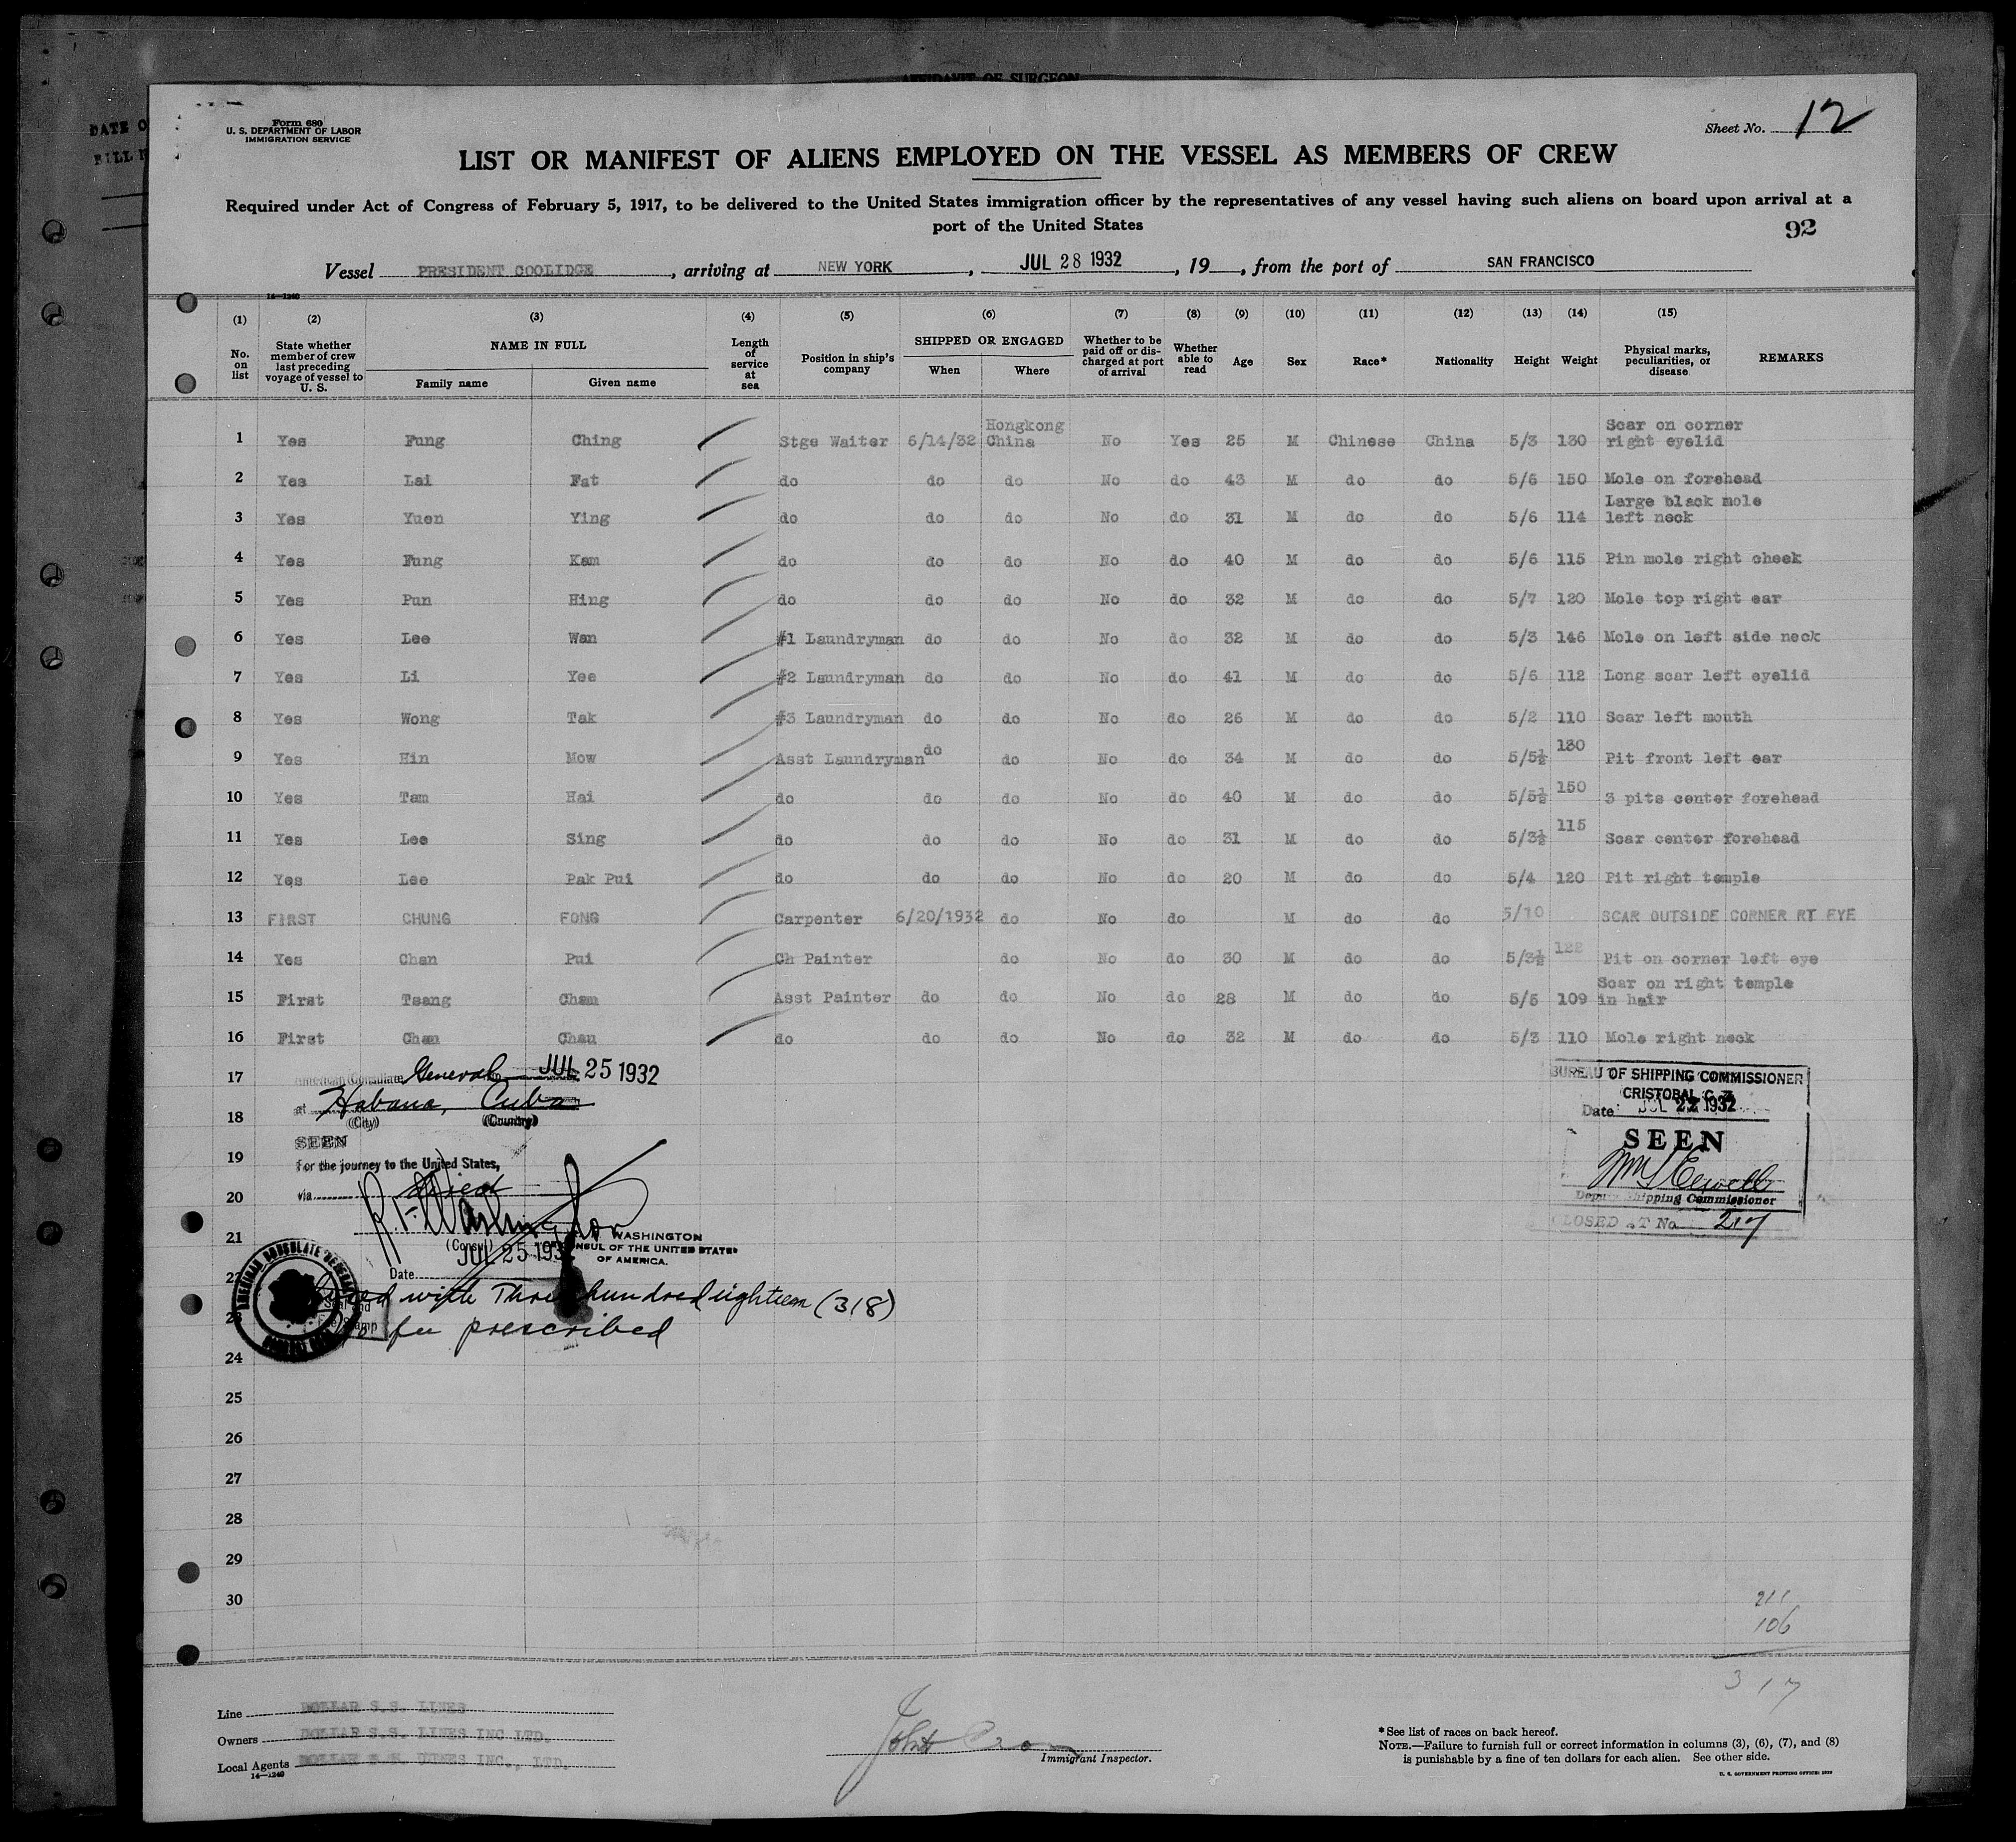 AFFIDAVIT OF SURGEON
DATE O
BILL N
Form 680
U. S. DEPARTMENT OF LABOR
IMMIGRATION SERVICE
Sheet No. 12
LIST OR MANIFEST OF ALIENS EMPLOYED ON THE VESSEL AS MEMBERS OF CREW
Required under Act of Congress of February 5, 1917, to be delivered to the United States immigration officer by the representatives of any vessel having such aliens on board upon arrival at a
port of the United States
92
Vessel PRESIDENT COOLIDGE, arriving at NEW YORK, JUL 28 1932, 19, from the port of SAN FRANCISCO
14—1240
(1) (2) (3) (4) (5) (6) (7) (8) (9) (10) (11) (12) (13) (14) (15)
No. on list
State whether member of crew last preceding voyage of vessel to U. S.
NAME IN FULL
Family name Given name
Length of service at sea
Position in ship's company
SHIPPED OR ENGAGED
When Where
Whether to be paid off or discharged at port of arrival
Whether able to read
Age Sex Race* Nationality Height Weight
Physical marks, peculiarities, or disease
REMARKS
1 Yes Fung Ching Stge Waiter 6/14/32 Hongkong China No Yes 25 M Chinese China 5/3 130 Scar on corner right eyelid
2 Yes Lai Fat do do do No do 43 M do do 5/6 150 Mole on forehead
3 Yes Yuen Ying do do do No do 31 M do do 5/6 114 Large black mole left neck
4 Yes Fung Kam do do do No do 40 M do do 5/6 115 Pin mole right cheek
5 Yes Pun Hing do do do No do 32 M do do 5/7 120 Mole top right ear
6 Yes Lee Wan #1 Laundryman do do No do 32 M do do 5/3 146 Mole on left side neck
7 Yes Li Yee #2 Laundryman do do No do 41 M do do 5/6 112 Long scar left eyelid
8 Yes Wong Tak #3 Laundryman do do No do 26 M do do 5/2 110 Scar left mouth
9 Yes Hin Mow Asst Laundryman do do No do 34 M do do 5/5½ 130 Pit front left ear
10 Yes Tam Hai do do do No do 40 M do do 5/5½ 150 3 pits center forehead
11 Yes Lee Sing do do do No do 31 M do do 5/3½ 115 Scar center forehead
12 Yes Lee Pak Pui do do do No do 20 M do do 5/4 120 Pit right temple
13 FIRST CHUNG FONG Carpenter 6/20/1932 do No do M do do 5/10 SCAR OUTSIDE CORNER RT EYE
14 Yes Chan Pui Ch Painter do No do 30 M do do 5/3½ 122 Pit on corner left eye
15 First Tsang Cham Asst Painter do do No do 28 M do do 5/5 109 Scar on right temple in hair
16 First Chan Chau do do do No do 32 M do do 5/3 110 Mole right neck
17
18
19
20
21
22
23
24
25
26
27
28
29
30
American Consulate General JUL 25 1932
at Habana, Cuba
(City) (Country)
SEEN
For the journey to the United States,
via direct
WASHINGTON
(Consul) CONSUL OF THE UNITED STATES
OF AMERICA.
JUL 25 1932
Date
AMERICAN CONSULATE GENERAL
Seal and
Fee Stamp
Closed with Three hundred eighteen (318)
No fee prescribed
BUREAU OF SHIPPING COMMISSIONER
CRISTOBAL C Z
Date JUL 22 1932
SEEN
Deputy Shipping Commissioner
CLOSED AT No 217
211
106
317
Line DOLLAR S.S. LINES
Owners DOLLAR S.S. LINES INC LTD.
Local Agents DOLLAR S.S. LINES INC., LTD.
14—1240
John
Immigrant Inspector.
*See list of races on back hereof.
NOTE.—Failure to furnish full or correct information in columns (3), (6), (7), and (8)
is punishable by a fine of ten dollars for each alien. See other side.
U. S. GOVERNMENT PRINTING OFFICE: 1929